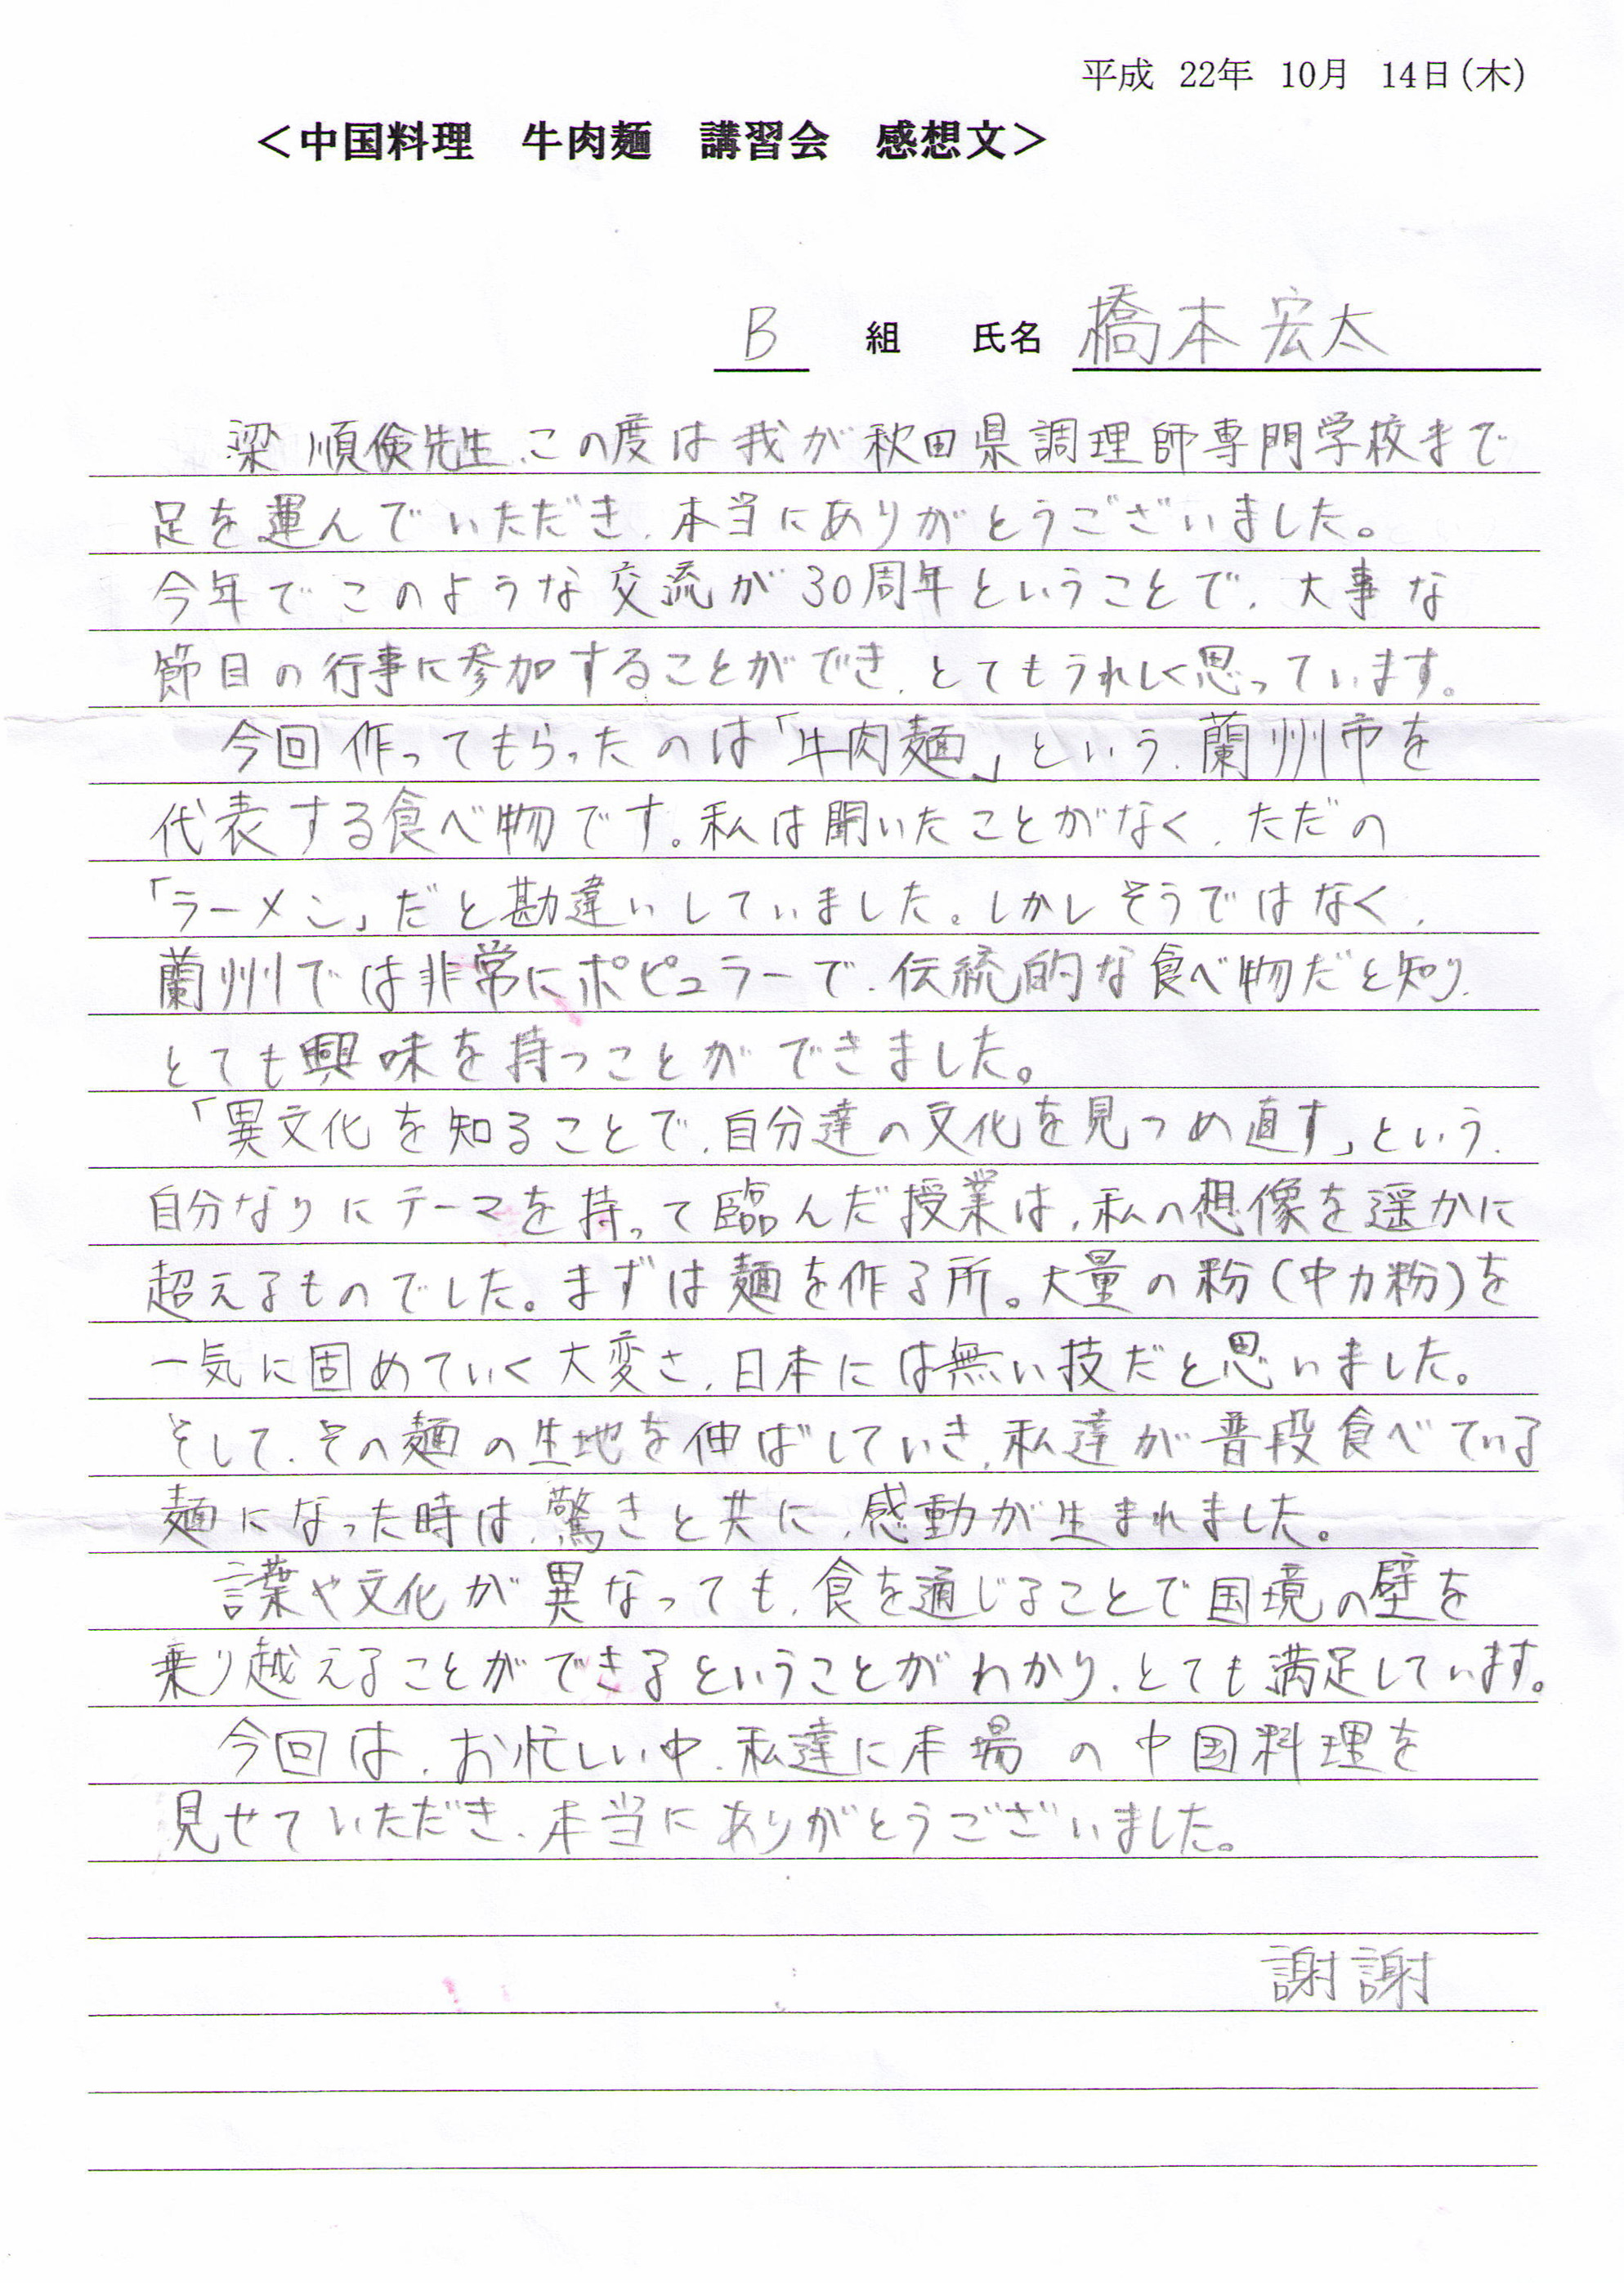 平成 22年 10月 14日(木)
＜中国料理 牛肉麺 講習会 感想文＞
B 組 氏名 橋本宏太
梁 順倹先生、この度は我が秋田県調理師専門学校まで
足を運んでいただき、本当にありがとうございました。
今年でこのような交流が30周年ということで、大事な
節目の行事に参加することができ、とてもうれしく思っています。
今回作ってもらったのは「牛肉麺」という、蘭州市を
代表する食べ物です。私は聞いたことがなく、ただの
「ラーメン」だと勘違いしていました。しかしそうではなく、
蘭州では非常にポピュラーで、伝統的な食べ物だと知り、
とても興味を持つことができました。
「異文化を知ることで、自分達の文化を見つめ直す」という、
自分なりにテーマを持って臨んだ授業は、私の想像を遥かに
超えるものでした。まずは麺を作る所。大量の粉(中力粉)を
一気に固めていく大変さ、日本には無い技だと思いました。
そして、その麺の生地を伸ばしていき、私達が普段食べている
麺になった時は、驚きと共に、感動が生まれました。
言葉や文化が異なっても、食を通じることで国境の壁を
乗り越えることができるということがわかり、とても満足しています。
今回は、お忙しい中、私達に本場の中国料理を
見せていただき、本当にありがとうございました。
謝謝